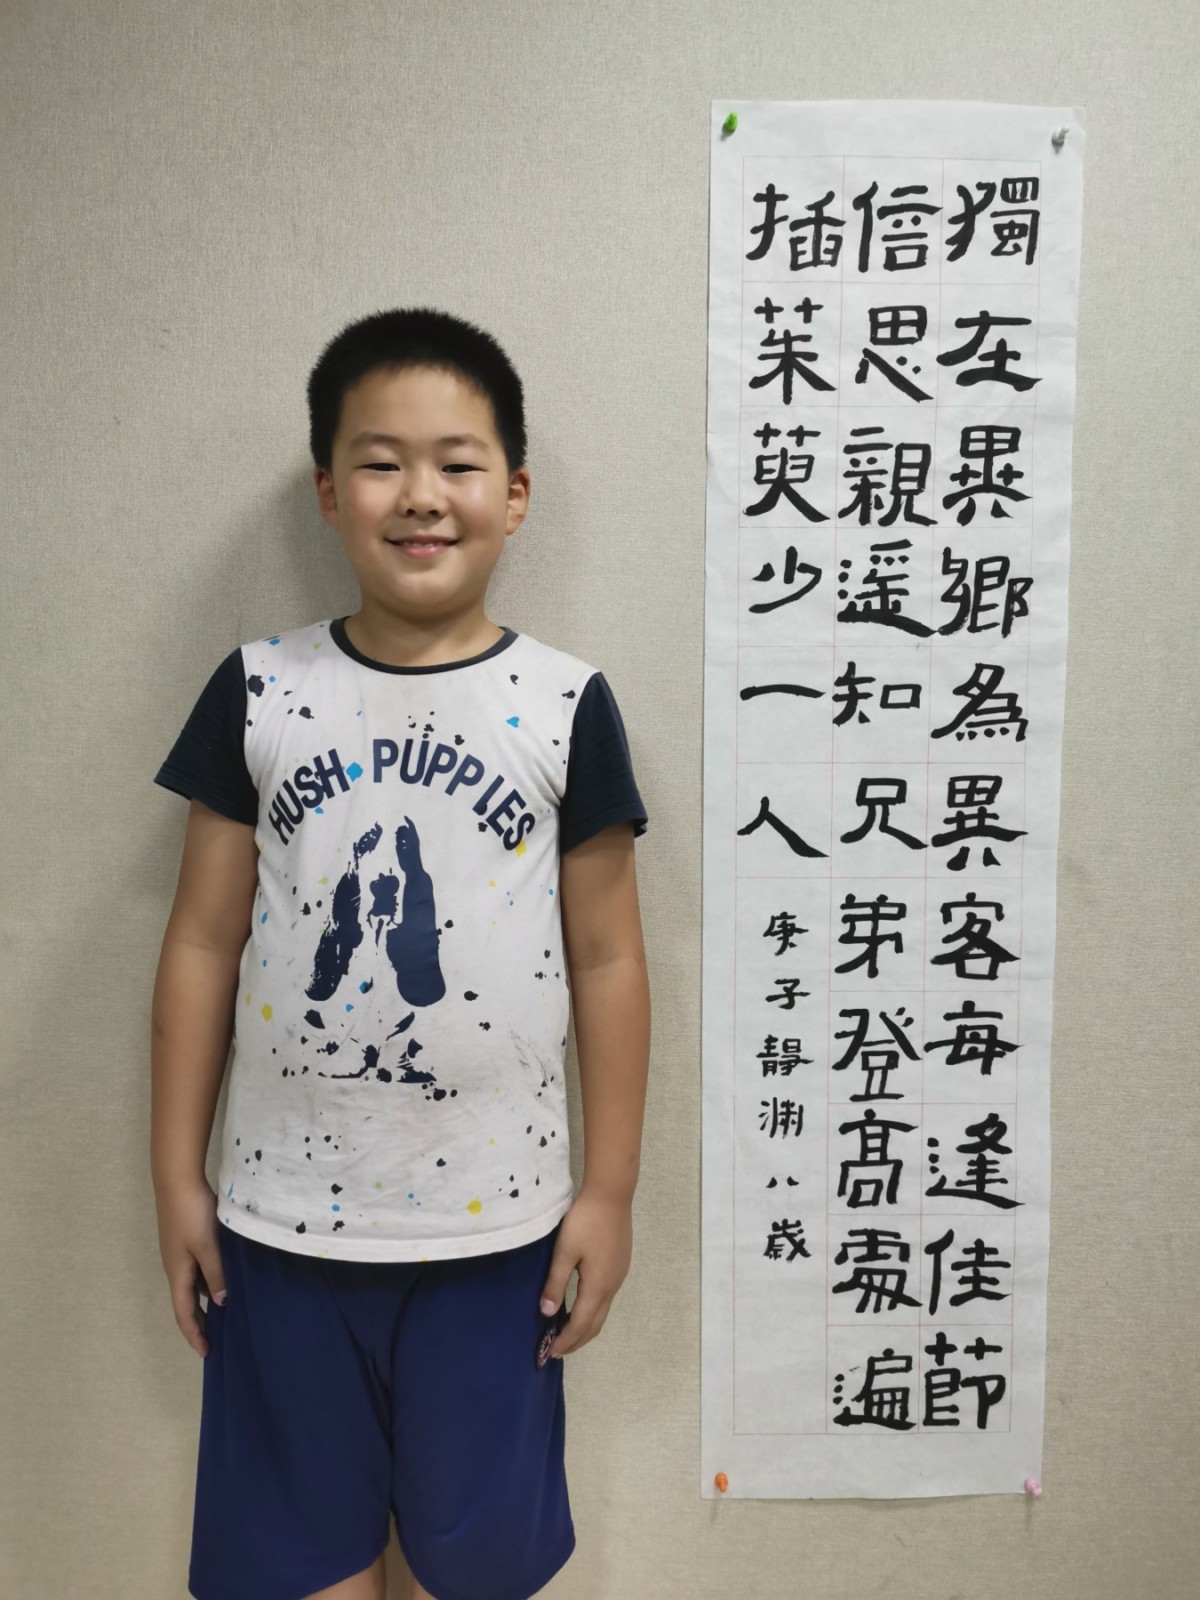 獨在異鄉為異客每逢佳節
倍思親遥知兄弟登高處遍
插茱萸少一人
庚子靜渊八歲
HUSH PUPPIES